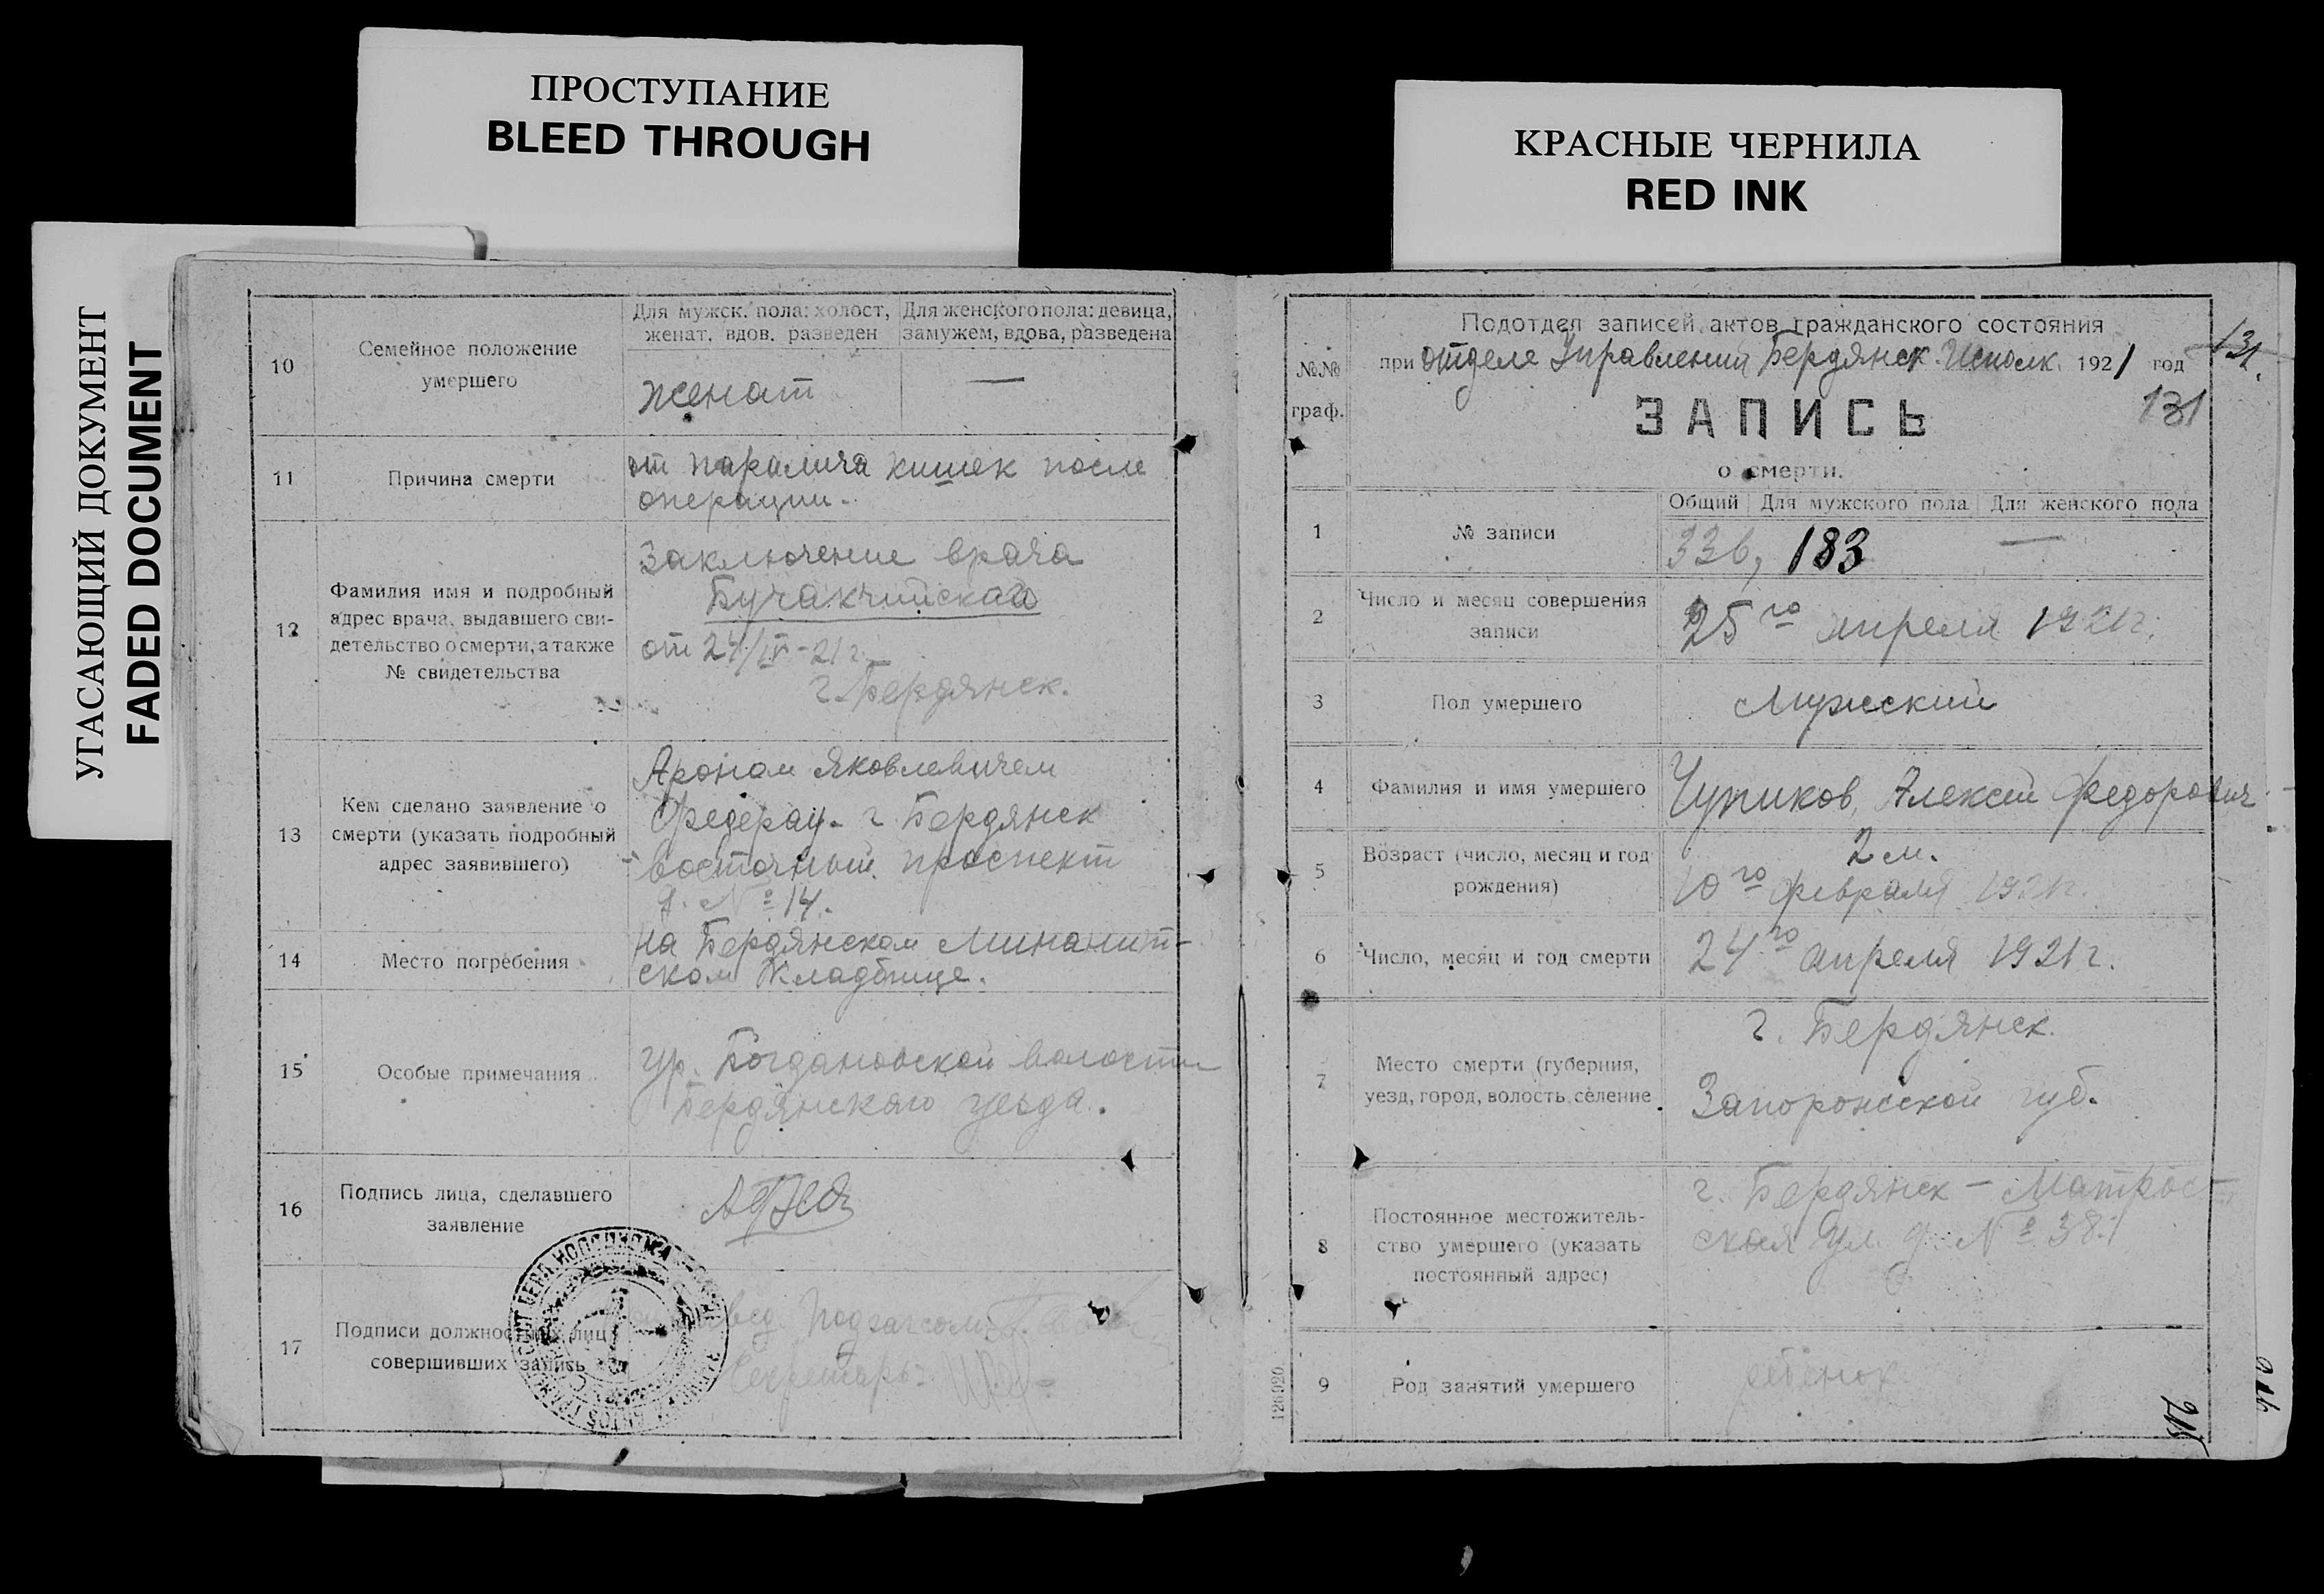 ПРОСТУПАНИЕ
BLEED THROUGH
КРАСНЫЕ ЧЕРНИЛА
RED INK
УГАСАЮЩИЙ ДОКУМЕНТ
FADED DOCUMENT
10
Семейное положение
умершего
Для мужск. пола: холост,
женат, вдов. разведен
Для женского пола: девица,
замужем, вдова, разведена
женат
—
11
Причина смерти
от паралича кишек после
операции.
12
Фамилия имя и подробный
адрес врача, выдавшего сви-
детельство о смерти, а также
№ свидетельства
Заключение врача
от 24/IV-21 г.
г. Бердянск.
13
Кем сделано заявление о
смерти (указать подробный
адрес заявившего)
Ароном Яковлевичем
Федерау. г. Бердянск
восточный проспект
д. № 14.
14
Место погребения
на Бердянском Минанит-
ском Кладбище.
15
Особые примечания
гр. Богдановской волости
Бердянскаго уезда.
16
Подпись лица, сделавшего
заявление
17
Подписи должностных лиц
совершивших запись
Секретарь:
№№
граф.
Подотдел записей актов гражданского состояния
при отделе Управления Бердянск. Исполк. 1921 год
131
131
ЗАПИСЬ
о смерти.
1
№ записи
Общий
Для мужского пола
Для женского пола
336,
183
—
2
Число и месяц совершения
записи
25го апреля 1921г.
3
Пол умершего
Мужский
4
Фамилия и имя умершего
Алексей Федорович
5
Возраст (число, месяц и год
рождения)
2 м.
10го февраля 1921г.
6
Число, месяц и год смерти
24го апреля 1921г.
7
Место смерти (губерния,
уезд, город, волость, селение
г. Бердянск.
Запорожской губ.
8
Постоянное местожитель-
ство умершего (указать
постоянный адрес)
г. Бердянск — Матрос-
ская ул. д. № 38.
9
Род занятий умершего
ребенок
126920